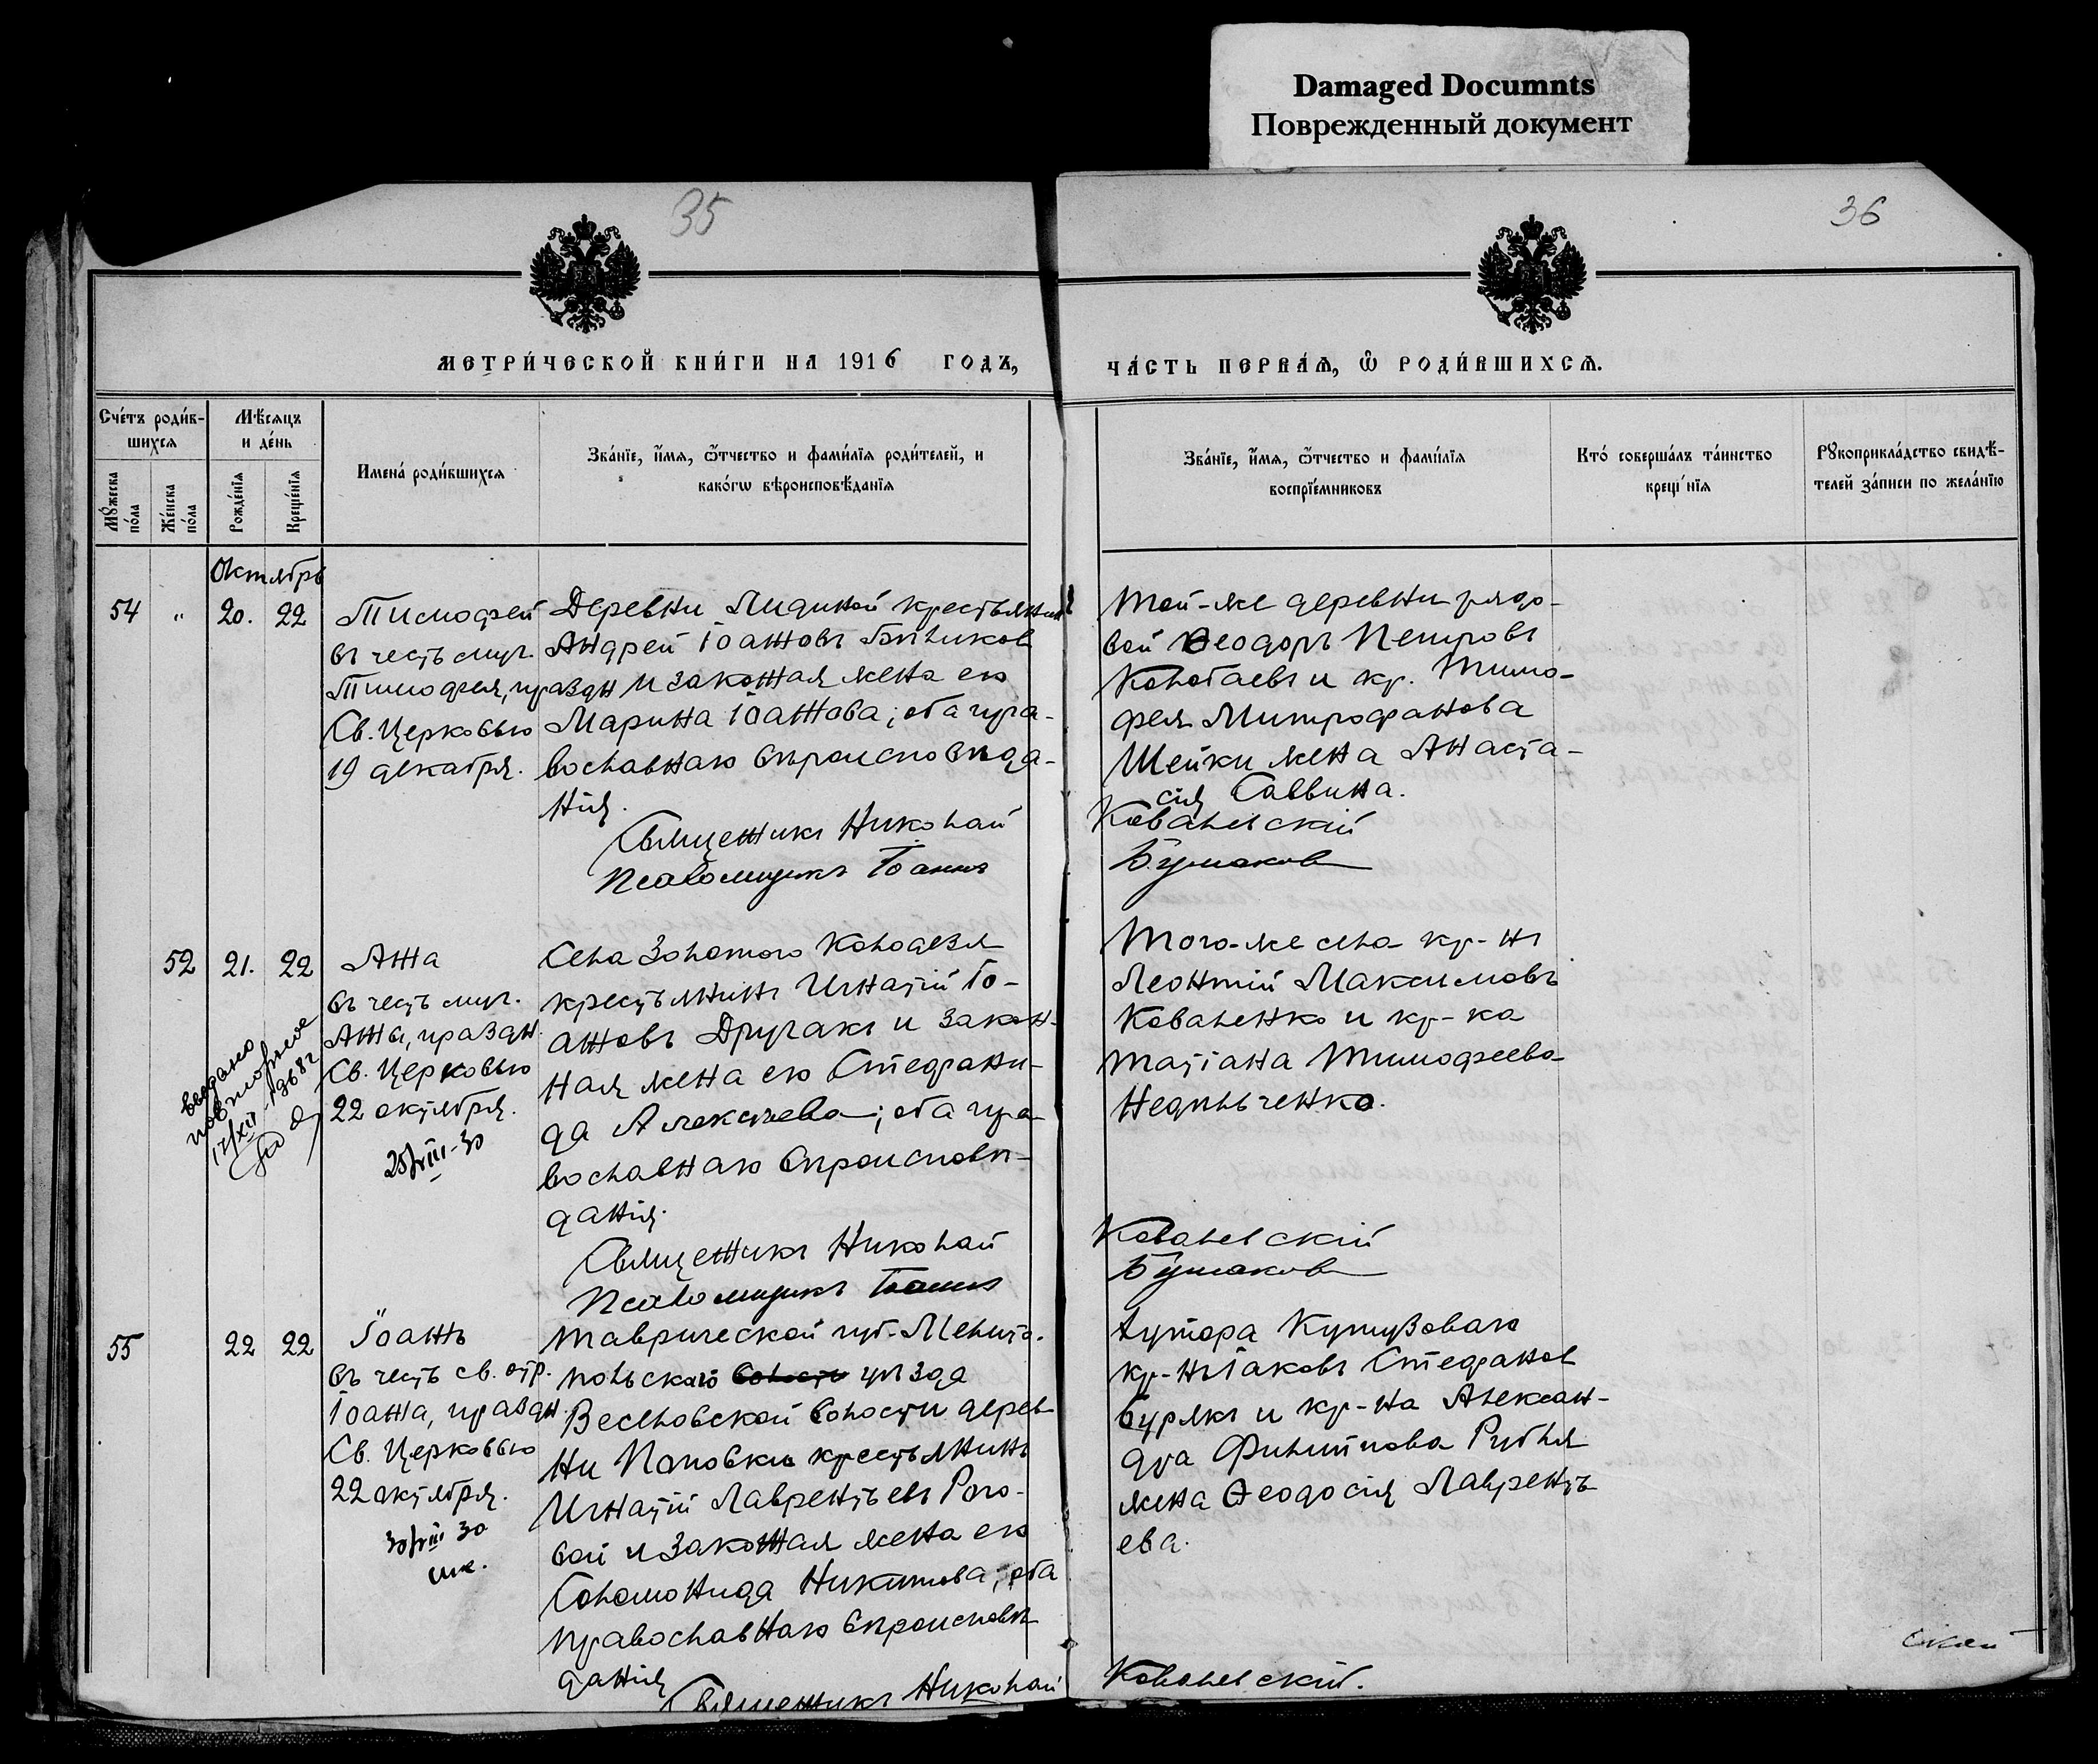 Damaged Documnts
Поврежденный документ
35
36
МЕТРИ́ЧЕСКОЙ КНИ́ГИ НА 1916 ГОДЪ,
ЧА́СТЬ ПЕРВАѦ, Ѡ҆ РОДИ́ВШИХСѦ.
Счє́тъ роди́в-
шихсѧ
Мꙋ́жеска по́ла
Же́нска по́ла
Мѣ́сѧцъ
и де́нь
Рожде́нїѧ
Креще́нїѧ
Имена́ роди́вшихсѧ
Зва́нїе, и҆́мѧ, ѻ҆́тчество и фами́лїѧ роди́телей, и
како́гѡ вѣроисповѣ́данїѧ
Зва́нїе, и҆́мѧ, ѻ҆́тчество и фами́лїѧ
воспрїе́мниковъ
Кто́ соверша́лъ та́инство
креще́нїѧ
Рꙋкоприкла́дство свидѣ́-
телей за́писи по жела́нїю
Октябрь
54 " 20. 22
Тимофей
въ честь муч.
Тимофея, праздн
Св. Церковью
19 декабря.
Деревни крестьянин
Андрей Іоанновъ
и законная жена его
Марина Іоаннова; оба пра-
вославнаго вѣроисповѣда-
нія.
Священникъ Николай
Псаломщикъ Іоаннъ
Той-же деревни рядо-
вой Ѳеодоръ Петровъ
и кр. Тимо-
фея Митрофанова
Шейки жена Анаста-
сія Саввина.
Ковалевскій
Бушаков
52 21. 22
Анна
въ честь муч.
Анны, праздн.
Св. Церковью
22 октября.
25/VIII-30
выдано
повторное
17/XII-1968г
Села Золотого Колодезя
крестьянинъ Игнатій Іо-
анновъ Другакъ и закон-
ная жена его Стефани-
да Алексѣева; оба пра
вославнаго вѣроисповѣ-
данія.
Священникъ Николай
Псаломщикъ Іоаннъ
Того-же села кр-нъ
Леонтій Максимовъ
Коваленко и кр-ка
Татіана Тимофеева
Недѣльченко.
Ковалевскій
Бушаков
55 22 22
Іоаннъ
въ честь св. отр.
Іоанна, праздн.
Св. Церковью
22 октября.
30/VIII 30
Таврической губ. Мелито-
польскаго уѣзда
Веселовской волости дерев
ни Поповки крестьянинъ
Игнатій Лаврентьевъ Рого-
вой и законная жена его
Соломонида Никитова; оба
православнаго вѣроисповѣ
данія
Священникъ Николай
Хутора Кутузоваго
кр-нъ Іаковъ Стефанов
Бурякъ и кр-на Алексан-
дра Филиппова Рубля
жена Ѳеодосія Лаврентъ
ева.
Ковалевскій.